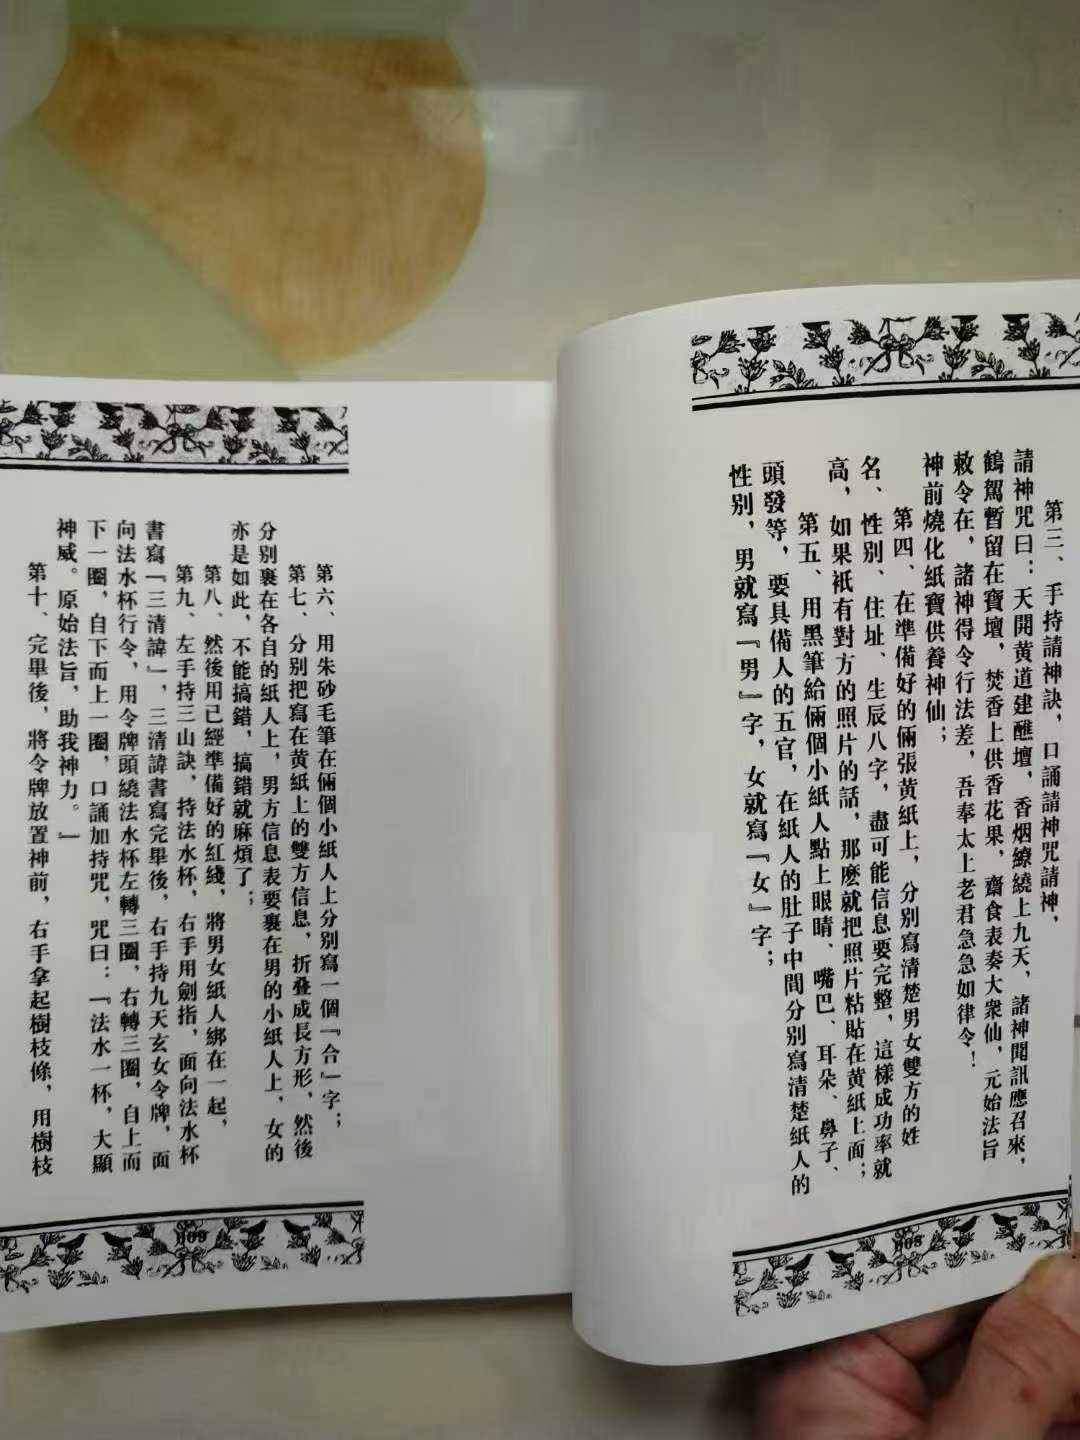 第三、手持請神訣，口誦請神咒請神，
請神咒曰：天開黃道建醮壇，香烟繚繞上九天，諸神聞訊應召來，
鶴駕暫留在寶壇，焚香上供香花果，齋食表奏大衆仙，元始法旨
敕令在，諸神得令行法差，吾奉太上老君急急如律令！
神前燒化紙寶供養神仙；
第四、在準備好的倆張黃紙上，分别寫清楚男女雙方的姓
名、性别、住址、生辰八字，盡可能信息要完整，這樣成功率就
高，如果衹有對方的照片的話，那麽就把照片粘貼在黃紙上面；
第五、用黑筆給倆個小紙人點上眼睛、嘴巴、耳朵、鼻子、
頭發等，要具備人的五官，在紙人的肚子中間分别寫清楚紙人的
性别，男就寫『男』字，女就寫『女』字；
008
第六、用朱砂毛筆在倆個小紙人上分别寫一個『合』字；
第七、分别把寫在黃紙上的雙方信息，折叠成長方形，然後
分别裹在各自的紙人上，男方信息表要裹在男的小紙人上，女的
亦是如此，不能搞錯，搞錯就麻煩了；
第八、然後用已經準備好的紅綫，將男女紙人綁在一起，
第九、左手持三山訣，持法水杯，右手用劍指，面向法水杯
書寫『三清諱』，三清諱書寫完畢後，右手持九天玄女令牌，面
向法水杯行令，用令牌頭繞法水杯左轉三圈，右轉三圈，自上而
下一圈，自下而上一圈，口誦加持咒，咒曰：『法水一杯，大顯
神威。原始法旨，助我神力。』
第十、完畢後，將令牌放置神前，右手拿起樹枝條，用樹枝
009